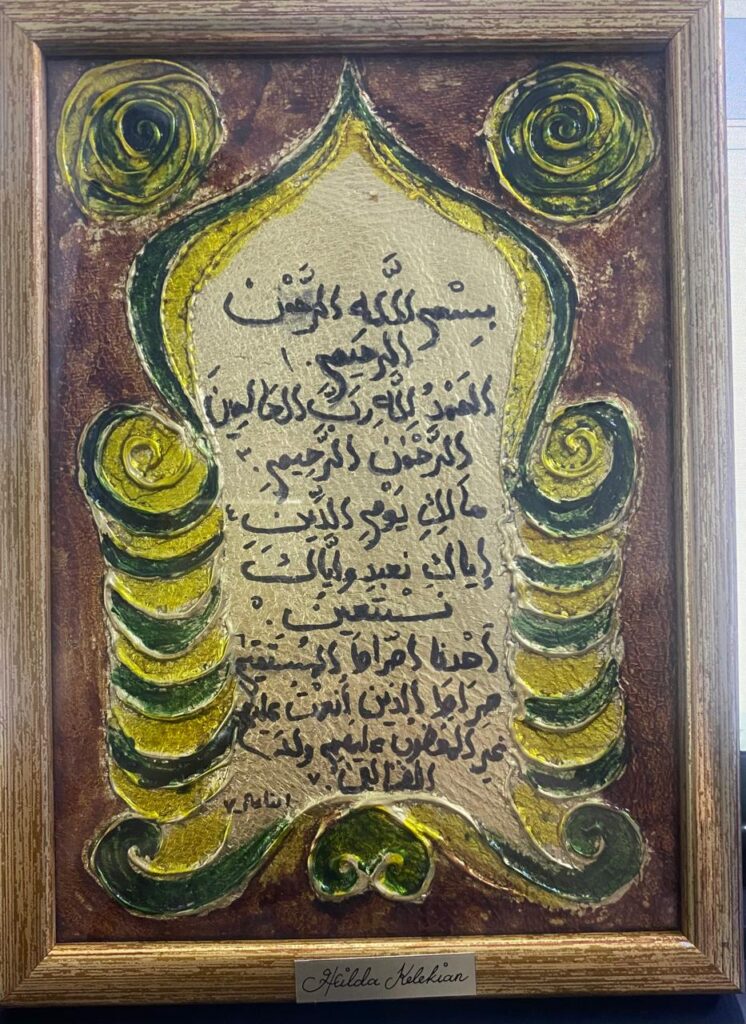 بِسْمِ اللَّه الرَّحْمٰن
الرحَيمِ. ١
الحمْدُ لِلَّهِ رَبَّ العَالمِينَ
الرَّحْمٰن الرَّحِيمِ ٣
مَالِكِ يَوْمِ الدَّينِ ٤
إياكَ نعبد وإيَّاكَ
نَسْتَعِينَ ٥
أَهْدنا اصّراطَ المُسْتَقيم ٦
صِراطَ الذين أنعمْتَ عليهم
غيرِ المغضوب عليهم ولا
الضالين ٧
Heilda Kelekian